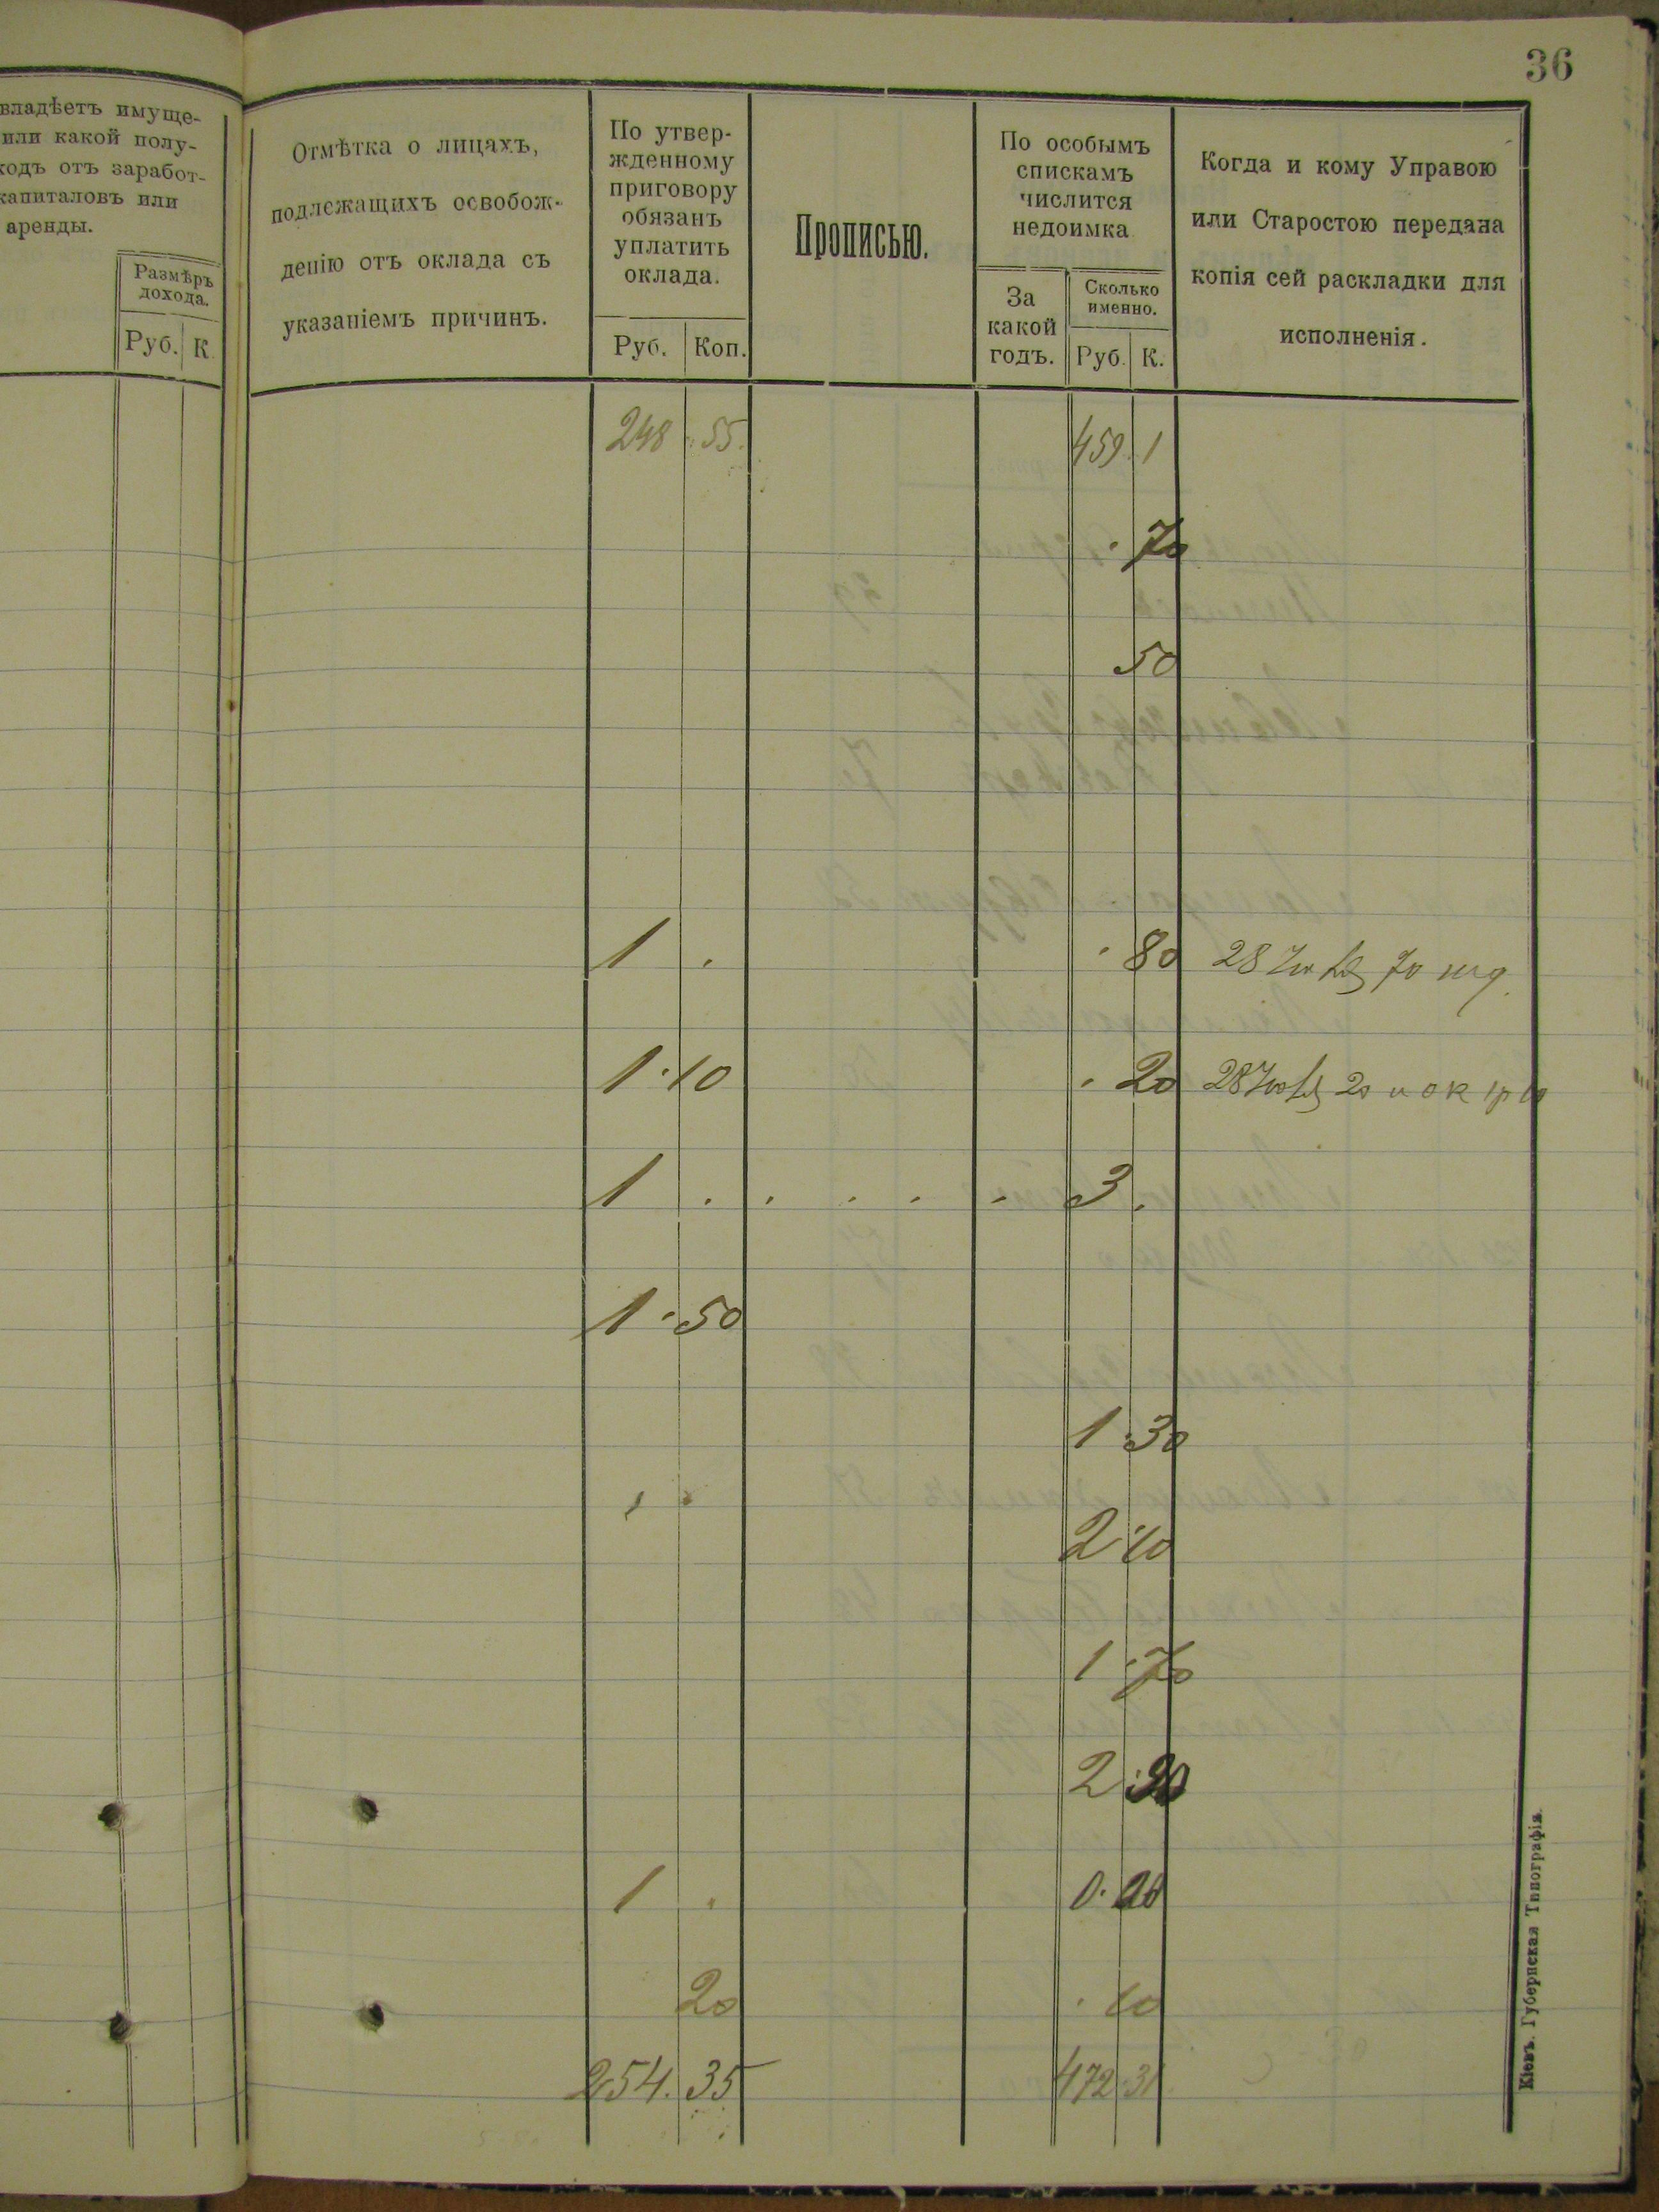 36
владѣетъ имуще-
или какой полу-
ходъ отъ заработ-
капиталовъ или
аренды.
Размѣръ
дохода.
Руб. К.
Отмѣтка о лицахъ,
подлежащихъ освобож-
денію отъ оклада съ
указаніемъ причинъ.
По утвер-
жденному
приговору
обязанъ
уплатить
оклада.
Руб. Коп.
Прописью.
По особымъ
спискамъ
числится
недоимка
За
какой
годъ.
Сколько
именно.
Руб. К.
Когда и кому Управою
или Старостою передана
копія сей раскладки для
исполненія.
248 55. 459. 1
70
50
1 . 80 28 70
1 10 20 28 20 и ок 1р 10
1 . . . . . 3 .
1 50
1 30
2 10
1 70
2
1 . 0.
20 10
254. 35 472 31
Кіевъ. Губернская Типографія.